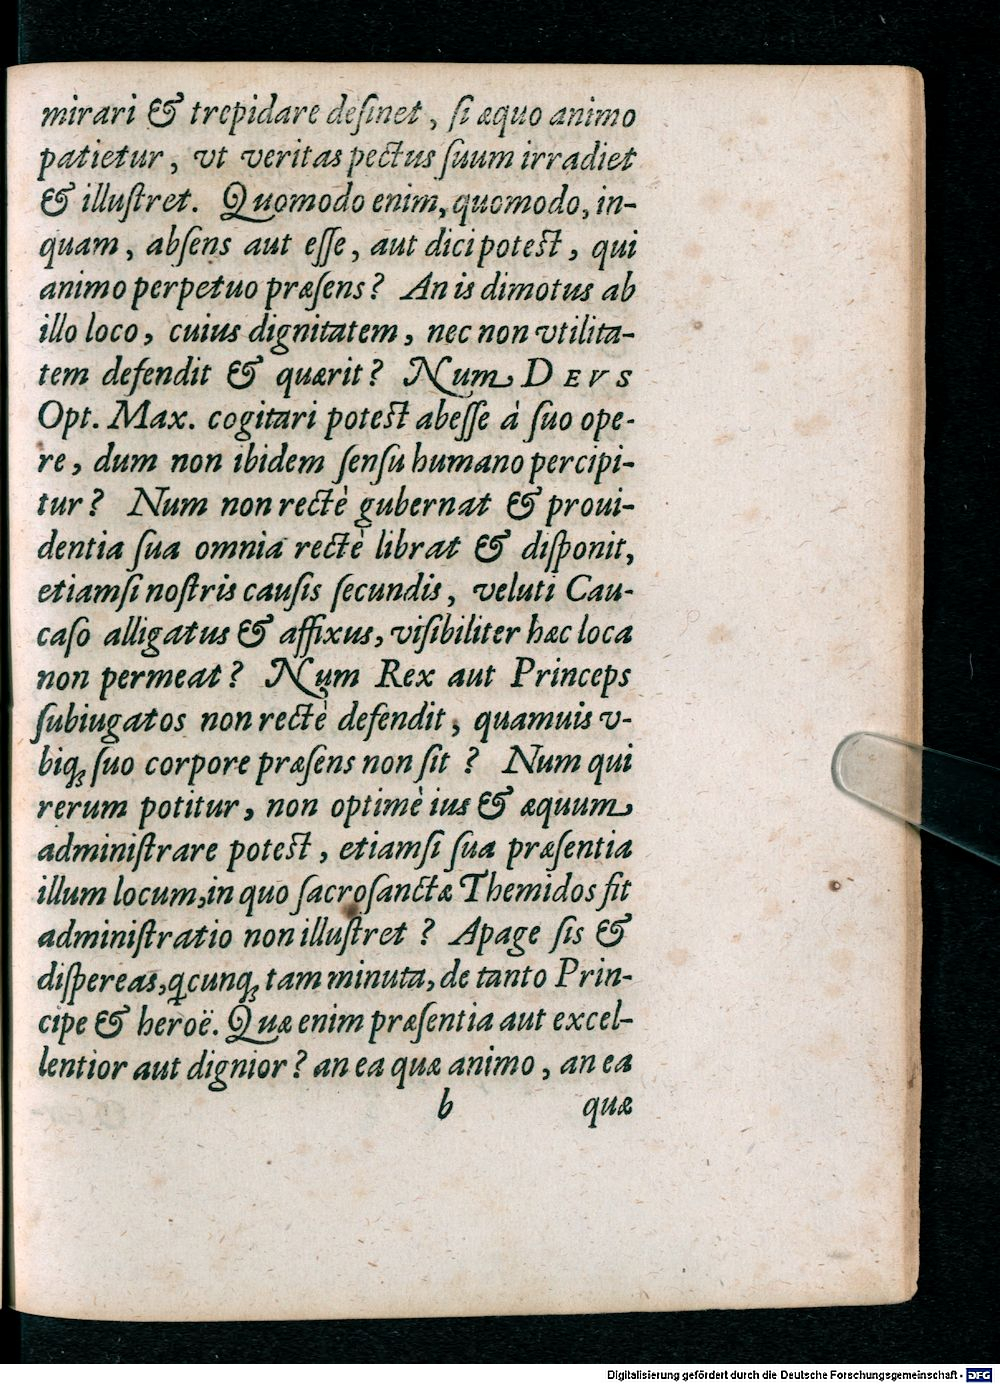 mirari & trepidare deſinet, ſi æquo animo
patietur, vt veritas pectus ſuum irradiet
& illuſtret. Quomodo enim, quomodo, in-
quam, abſens aut eſſe, aut dici poteſt, qui
animo perpetuo præſens? An is dimotus ab
illo loco, cuius dignitatem, nec non vtilita-
tem defendit & quærit? Num DEVS
Opt. Max. cogitari poteſt abeſſe à ſuo ope-
re, dum non ibidem ſenſu humano percipi-
tur? Num non rectè gubernat & proui-
dentia ſua omnia rectè librat & diſponit,
etiamſi noſtris cauſis ſecundis, veluti Cau-
caſo alligatus & affixus, viſibiliter hæc loca
non permeat? Num Rex aut Princeps
ſubiugatos non rectè defendit, quamuis v-
biqꝫ ſuo corpore præſens non ſit? Num qui
rerum potitur, non optimè ius & æquum
adminiſtrare poteſt, etiamſi ſua præſentia
illum locum, in quo ſacroſanctæ Themidos fit
adminiſtratio non illuſtret? Apage ſis &
diſpereas, q̃cunqꝫ tam minuta, de tanto Prin-
cipe & heroë. Quæ enim præſentia aut excel-
lentior aut dignior? an ea quæ animo, an ea
b quæ
Digitalisierung gefördert durch die Deutsche Forschungsgemeinschaft - DFG